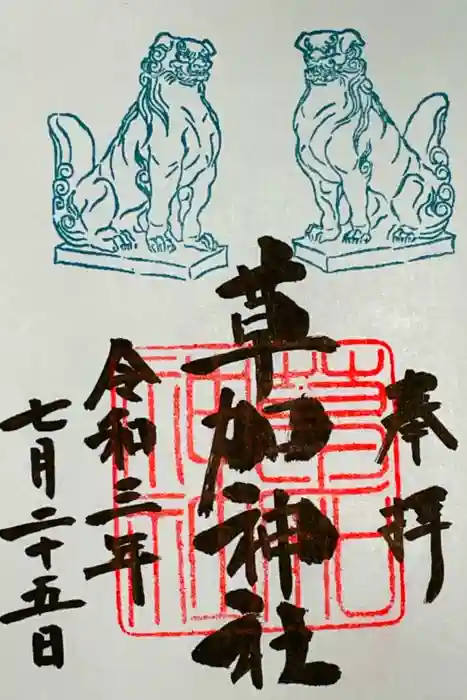 奉拝
草加神社
令和三年
七月二十五日